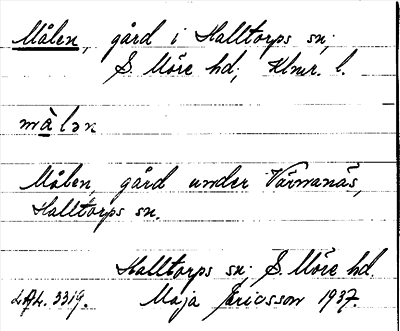 Målen, gård i Halltorps sn;
S. Möre hd; Klmr. l.
mà lən
Målen, gård under Värnanäs,
Halltorps sn.
Halltorps sn; S. Möre hd.
LAL. 3319. Maja Ericsson 1937.